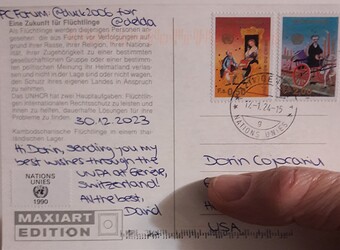 PCForum @duck2006 for @delda
Eine Zukunft für Flüchtlinge
Als Flüchtlinge werden diejenigen Personen an-
gesehen, die sich aus Furcht vor Verfolgungen auf-
grund ihrer Rasse, ihrer Religion, ihrer Nationa-
lität, ihrer Zugehörigkeit zu einer bestimmten
gesellschaftlichen Gruppe oder einer bestimm-
ten politischen Meinung im
Heimatland verlas-
sen haben und die nicht oder nicht wagen,
den Schutz ihres eigenen Landes in Anspruch
zu nehmen.
Das UNHCR hat zwei Hauptaufgaben: Flücht-
lingen internationalen Rechtsschutz zu leisten und
ihnen zu helfen, dauerhafte Lösungen für ihre
Probleme zu finden.
30.12.2023
Kambodschanische Flüchtlinge, in einem thai-
ländischen Lager
Hi Dorin, sending you my
best wishes through the
UNPA at Geneva,
Switzerland!
All the best,
David
NATIONS
UNIES
1990
MAXIART
EDITION
12-1.24-15
NATIONS UNIES
Dorin Cojocariu
USA